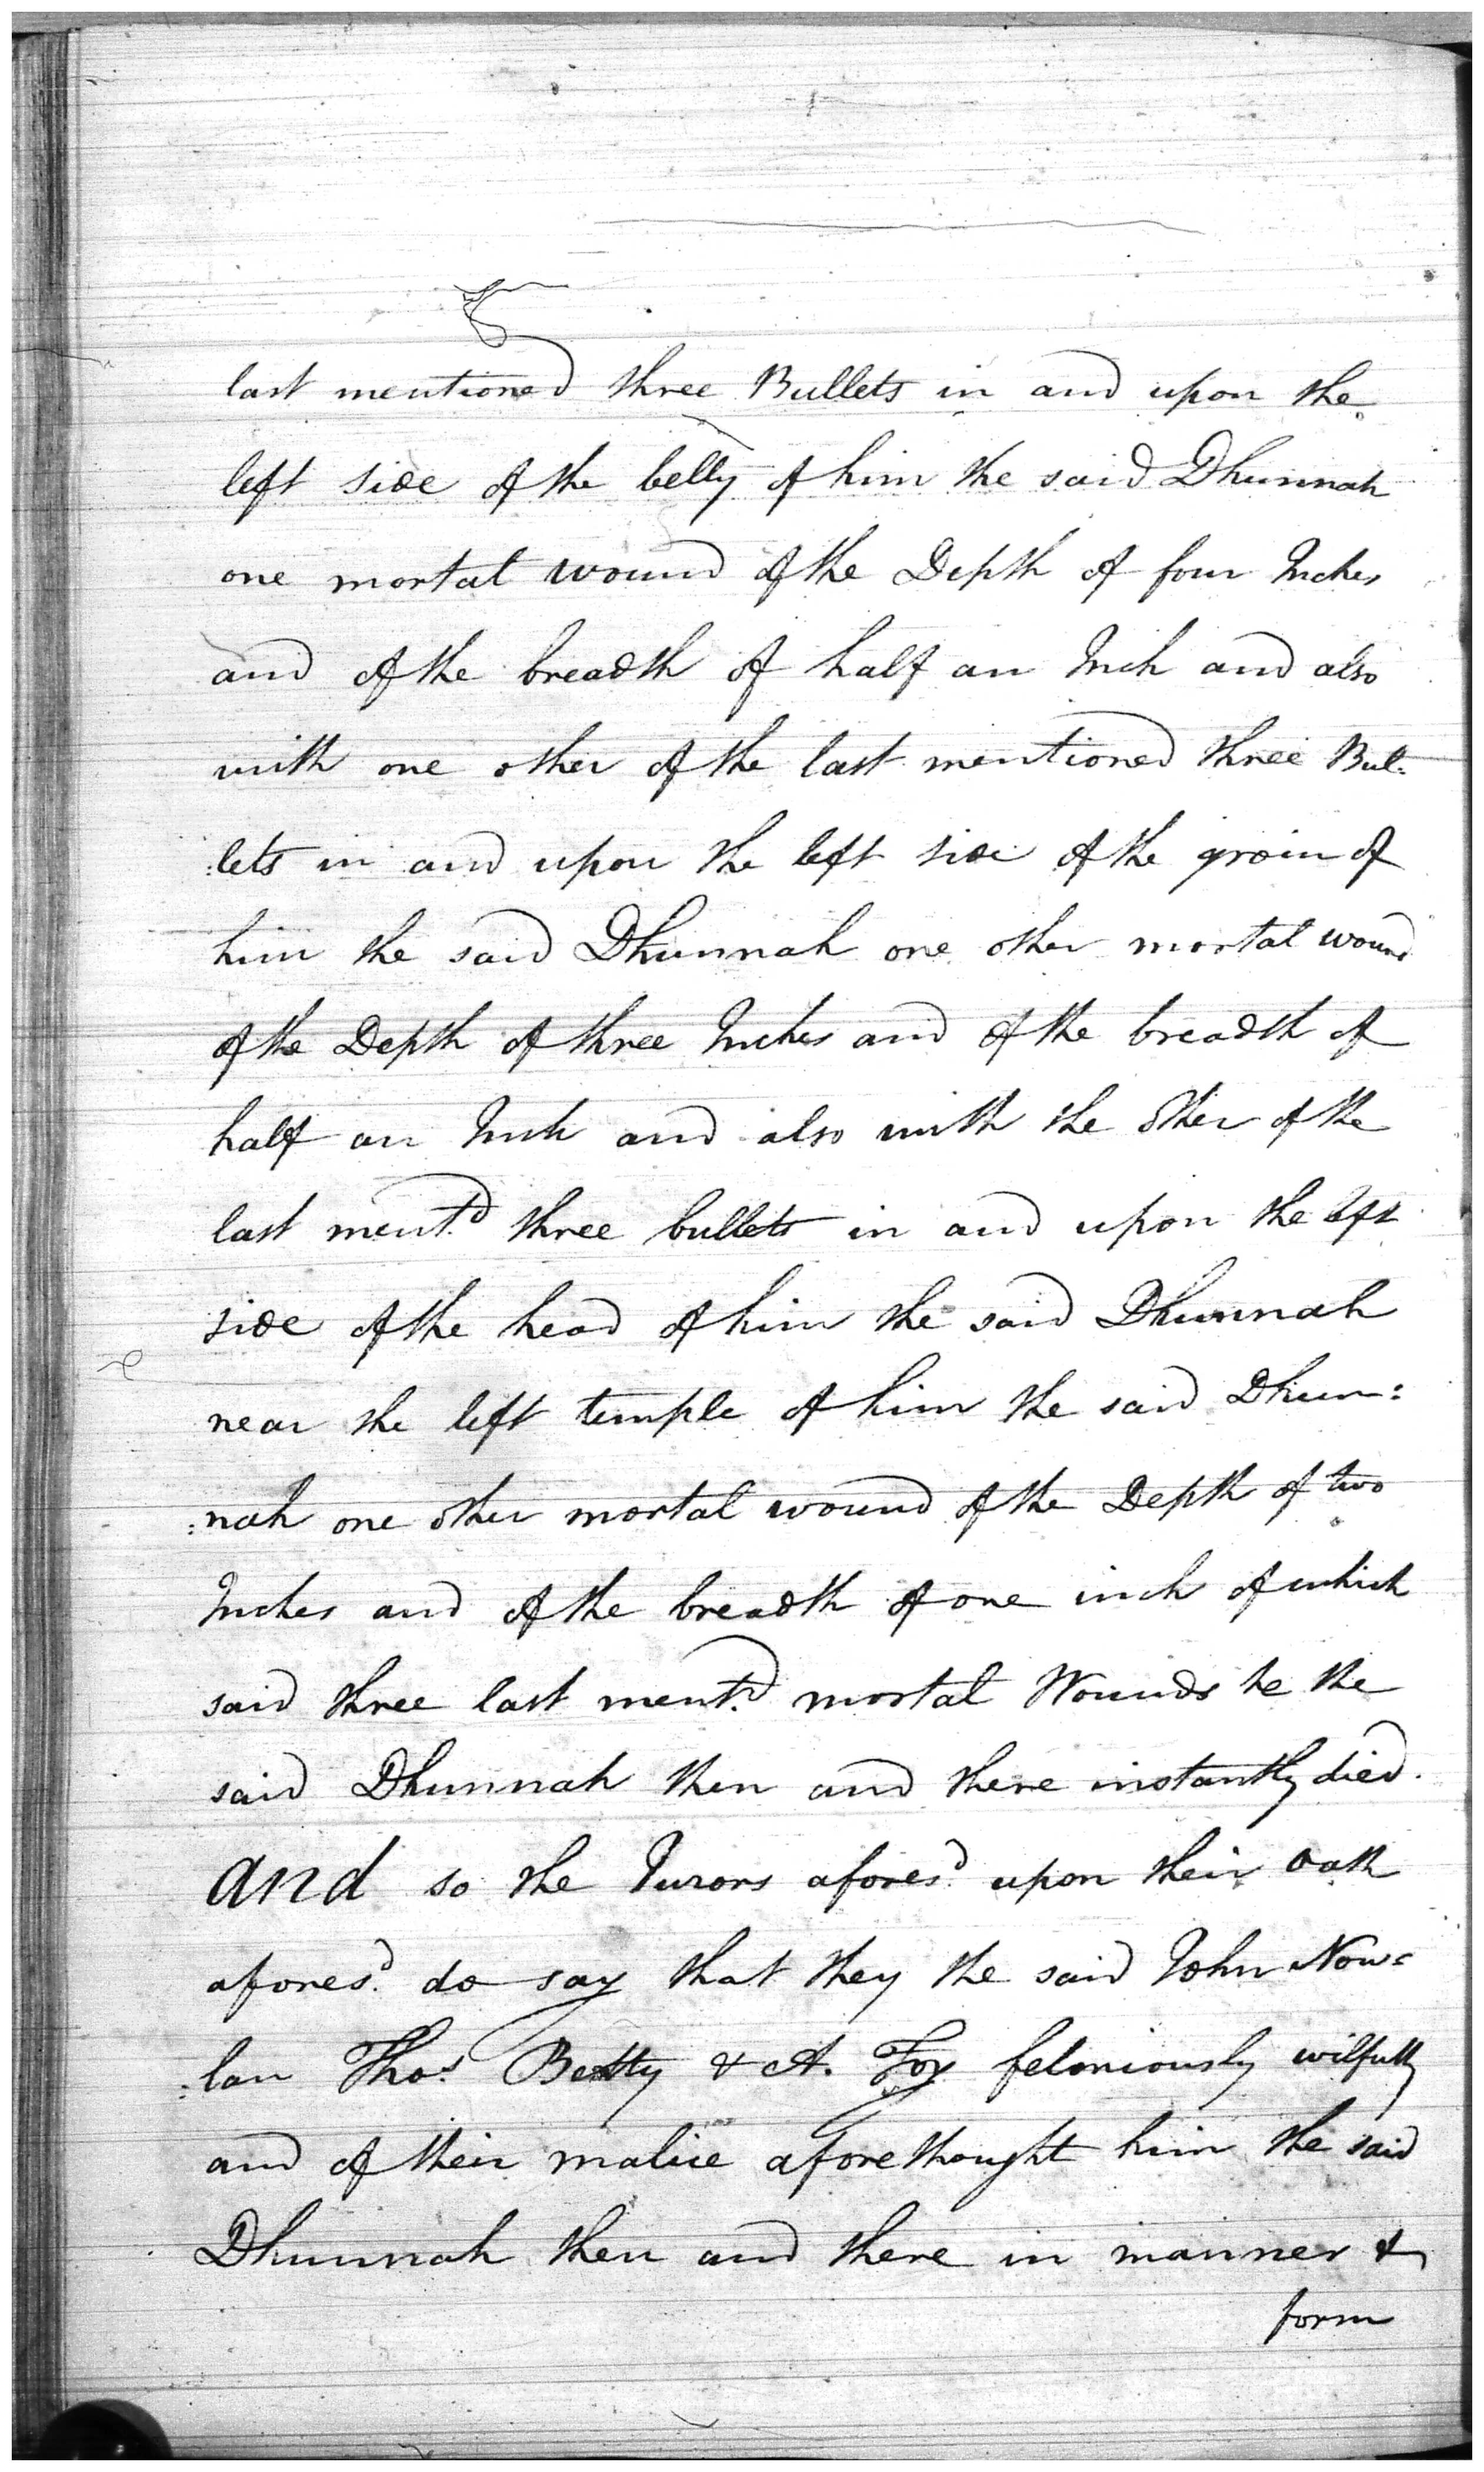 last mentioned three Bullets in and upon the
left side of the belly of him the said Dhunnah
one mortal wound of the Depth of four Inches
and of the breadth of half an Inch and also
with one other of the last mentioned three Bul:
:lets in and upon the left side of the groin of
him the said Dhunnah one other mortal wound
of the Depth of three Inches and of the breadth of
half an Inch and also with the other of the
last ment.d three bullets in and upon the left
side of the head of him the said Dhunnah
near the left temple of him the said Dhun:
:nah one other mortal wound of the Depth of two
Inches and of the breadth of one inch of which
said three last ment.d mortal Wounds he the
said Dhunnah then and there instantly died.
And so the Jurors afores.d upon their Oath
afores.d do say that they the said John Now=
:lan Tho.s Betty & A. Foy feloniously wilfully
and of their malice aforethought him the said
Dhunnah then and there in manner &
form